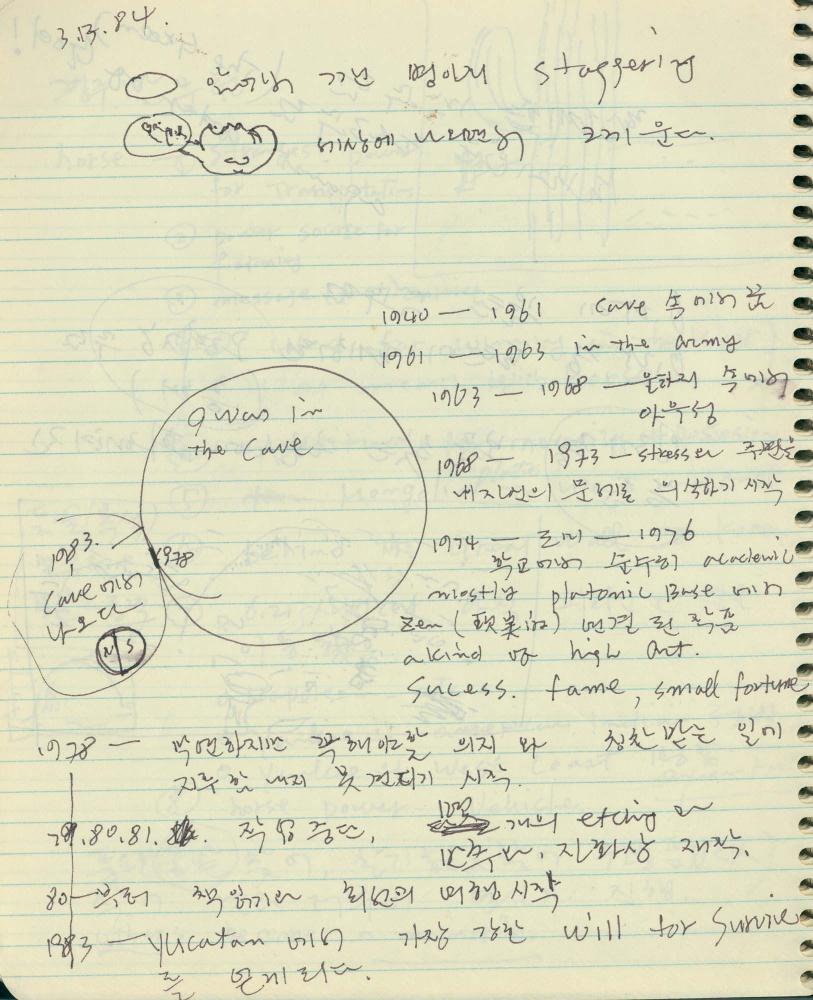 3.13.84.
알에서 깨난 병아리 staggering
세상에 나오면서 크게 운다.
1940 — 1961 cave 속에서 꿈
1961 — 1963 in the army
1963 — 1968 — 울타리 속에서
아우성
1968 — 1973 — stress와 주변을
내 자신의 문제로 의식하기 시작
1974 — 도미 — 1976
학교에서 순수히 academic
mostly platonic Base에서
Zen ( 的) 연결 된 작품
a kind of high art.
Sucess. fame, small fortune
I was in
the Cave
1983.
1978
Cave에서
나오다
N S
1978 — 막연하지만 꼭 해야할 의지와 칭찬 받는 일에
지루함 내지 못견디기 시작.
79.80.81. 작업 중단, 개의 etching과
자화상 제작.
80 — 부터 책읽기와 여행 시작
1983 — Yucatan에서 가장 강한 will for Survive
를 얻게 되다.